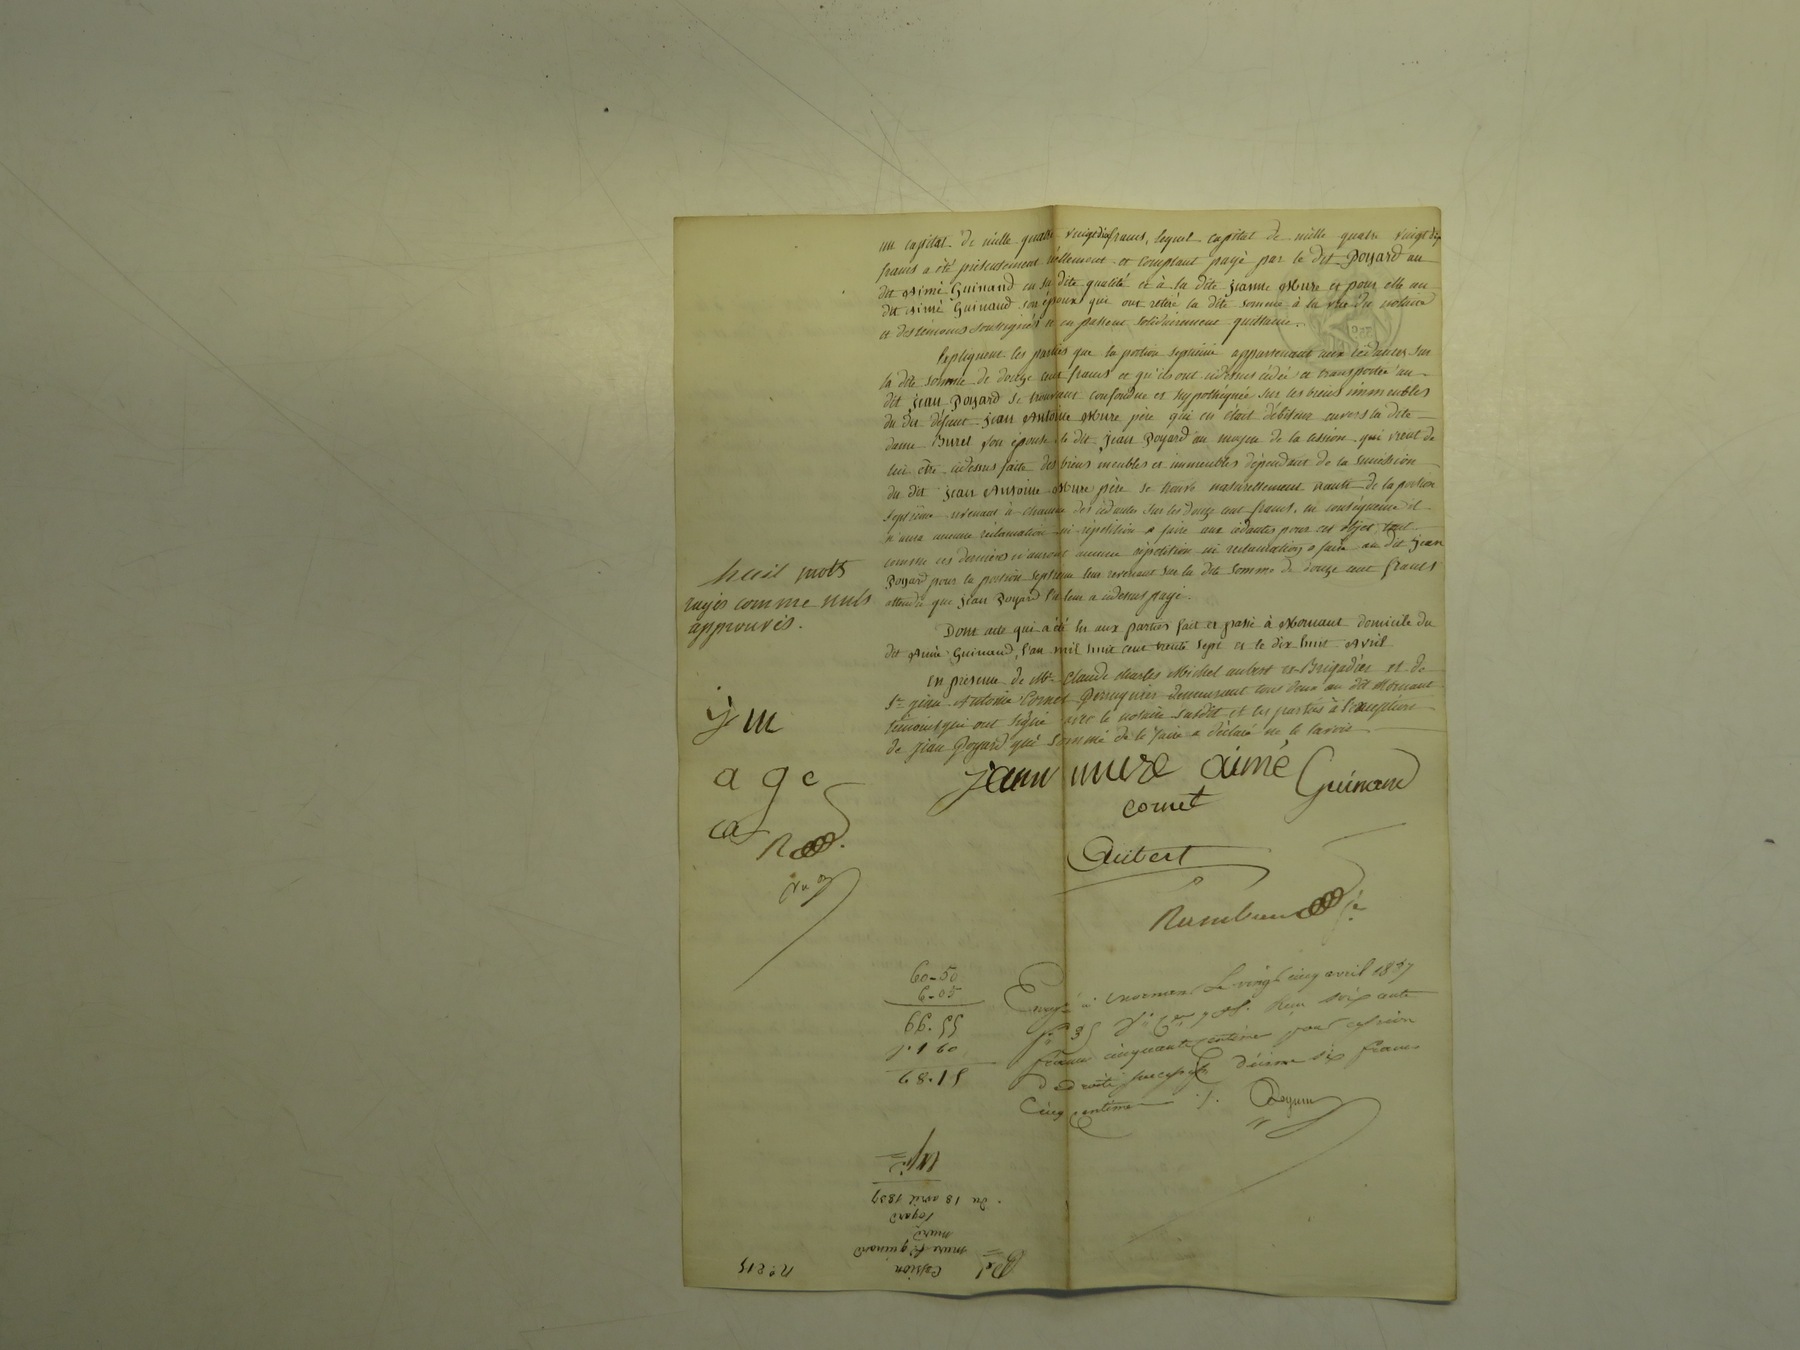 un capital de mille quatre vingt dix francs, lequel capital de mille quatre vingt dix
francs a été présentement réellement et comptant payé par le dit Poyard au
dit Aimé Guinand en sa dite qualité et à la dite jeanne Mure et pour elle au
dit Aimé Guinand son époux qui ont retiré la dite somme à la vue du notaire
et des témoins soussignés et en passent solidairement quittance.
Expliquent les parties que la portion septième appartenant aux cédantes sur
la dite somme de douze cent francs et qu'ils ont cidessus cédée et transportée au
dit jean Poyard se trouvant confondue et hypothéquée sur les biens immeubles
du dit défunt jean Antoine Mure père qui en était débiteur envers la dite
dame Buret son épouse le dit jean Poyard au moyen de la cession qui vient de
lui être cidessus faite des biens meubles et immeubles dépendant de la succession
du dit jean Antoine Mure père se trouve naturellement nanti de la portion
septième revenant à chacune des cédantes sur les douze cent francs, en conséquence il
n'aura aucune réclamation ni répétition à faire aux cédantes pour cet objet tout
comme ces dernières n'auront aucune répétition ni réclamations à faire au dit jean
Poyard pour la portion septième leur revenant sur la dite somme de douze cent francs
attendu que jean Poyard l'a leur a cidessus payé.
Dont acte qui a été lu aux parties fait et passé à Mornant domicile du
dit Aimé Guinand, l'an mil huit cent trente sept et le dix huit Avril
en présence de Mr Claude Charles Michel aubert ex-Brigadier et de
Sr jean Antoine Cornet Perruquier demeurant tous deux au dit Mornant
témoins qui ont signé avec le notaire susdit et les parties à l'exception
de jean Poyard qui sommé de le faire a déclaré ne le savoir
huit mots
rayés comme nuls
approuvés.
j m
a g c
ca
jeann mure aimé Guinand
cornet
Aubert
60-50
6-05
66.55
51.89
Enregé à Mornant le vingt cinq avril 1837
f° 35 Reçu soixante
francs cinquante centimes pour cession
de droits successifs Décime six francs
cinq centimes
n° 215
Cession
mure fe guinand
mure
Poyard
du 18 avril 1837